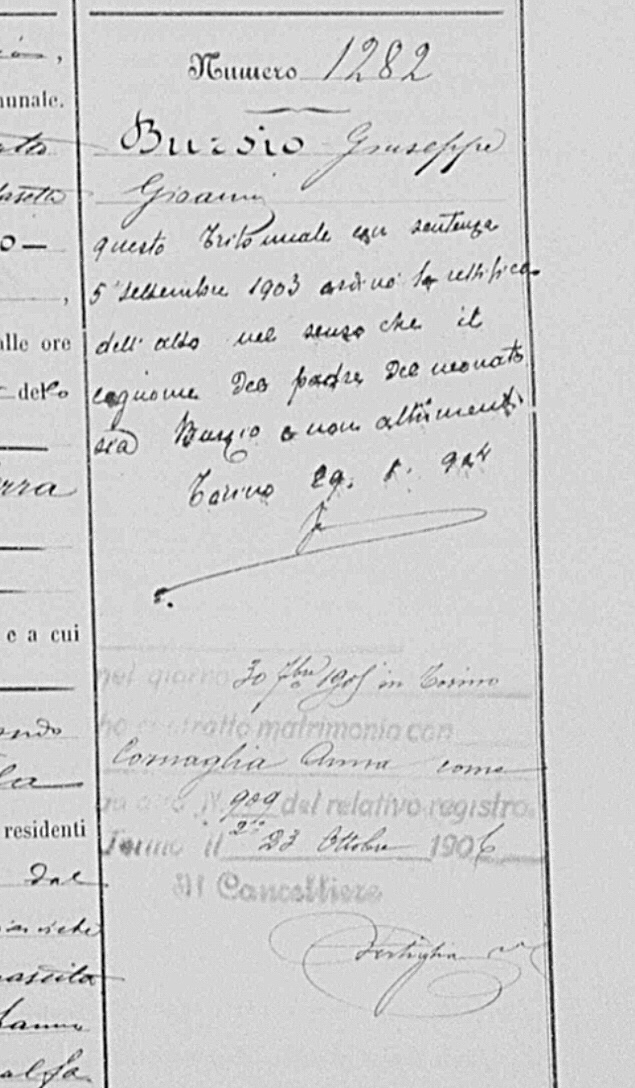 Numero 1282
Bursio Giuseppe
Gioanni
questo Tribunale con sentenza
5 settembre 1903 ordinò la rettifica
dell'atto nel senso che il
cognome del padre del neonato
sia Burzio e non altrimenti
Torino 29. 924
nel giorno 30 7bre 1905 in Torino
ha contratto matrimonio con
Cornaglia Anna come
da atto N. 909 del relativo registro.
Torino il 23 Ottobre 1906
Il Cancelliere
unale.
alle ore
del
erra
e a cui
residenti
dal
nascita